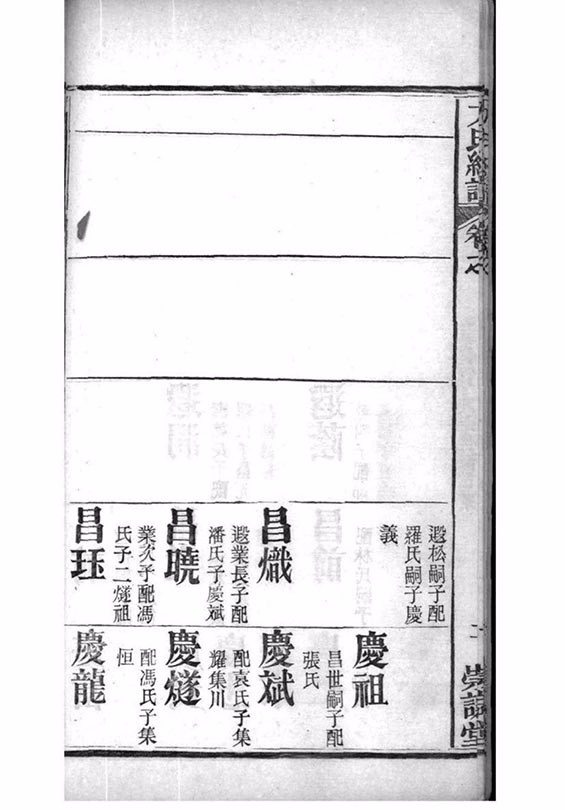 方氏總譜
卷之
堂
遐松嗣子配
羅氏嗣子慶
義
昌熾
遐業長子配
潘氏子慶斌
昌曉
業次子配馮
氏子二燧祖
昌珏
慶祖
昌世嗣子配
張氏
慶斌
配袁氏子集
耀集川
慶燧
配馮氏子集
恒
慶龍